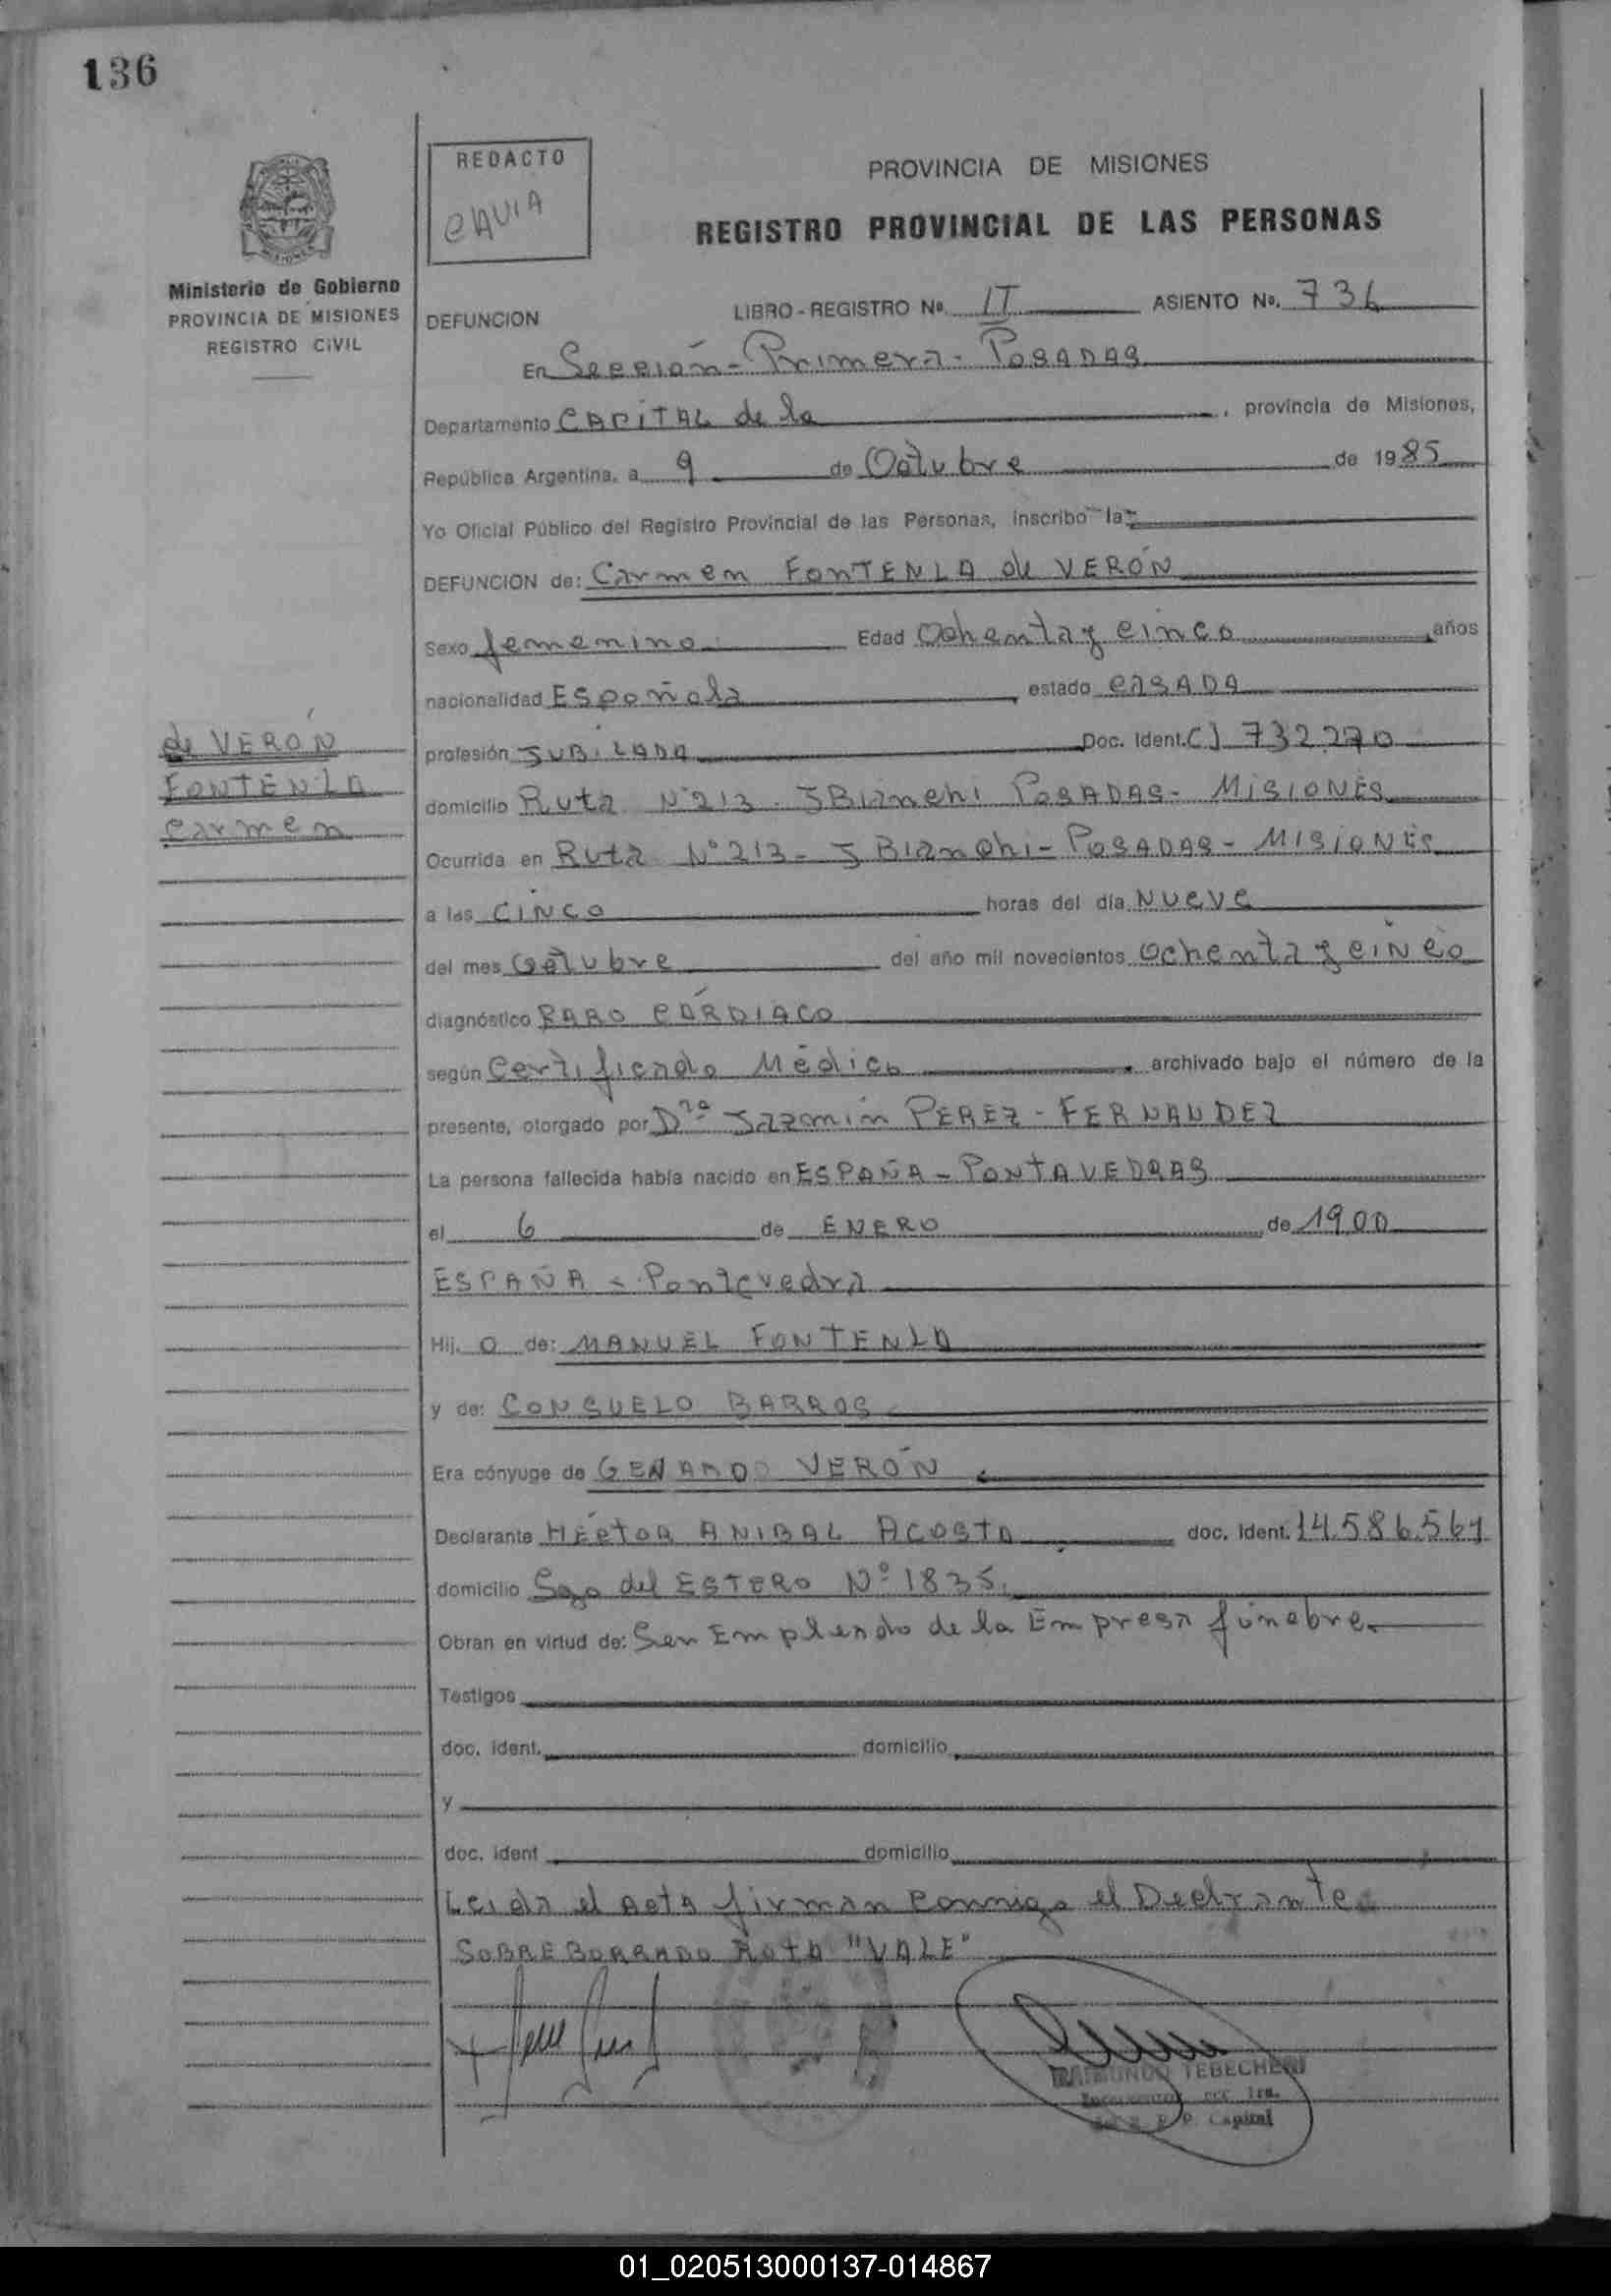 136
REDACTO
CHAVIA
PROVINCIA DE MISIONES
REGISTRO PROVINCIAL DE LAS PERSONAS
Ministerio de Gobierno
PROVINCIA DE MISIONES
REGISTRO CIVIL
DEFUNCION LIBRO - REGISTRO No. II ASIENTO No. 736
En Sección - Primera - POSADAS
Departamento CAPITAL de la , provincia de Misiones,
República Argentina, a 9 de Octubre de 1985
Yo Oficial Público del Registro Provincial de las Personas, inscribo la
DEFUNCION de: Carmen FONTENLA de VERÓN
Sexo femenino Edad Ochenta y cinco años
nacionalidad Española estado CASADA
de VERÓN
FONTENLA
Carmen
profesión JUBILADA Doc. Ident. CI 732.270
domicilio Ruta Nº 213 - J Bianchi POSADAS - MISIONES
Ocurrida en Ruta Nº 213 - J Bianchi - POSADAS - MISIONES
a las CINCO horas del día NUEVE
del mes Octubre del año mil novecientos Ochenta y CINCO
diagnóstico PARO CÁRDIACO
según Certificado Médico , archivado bajo el número de la
presente, otorgado por Dra Jazmin PEREZ - FERNANDEZ
La persona fallecida había nacido en ESPAÑA - PONTAVEDRAS
el 6 de ENERO de 1900
ESPAÑA - Pontevedra
Hij. O de: MANUEL FONTENLA
y de: CONSUELO BARROS
Era cónyuge de GENARO VERÓN
Declarante HÉCTOR ANIBAL ACOSTA doc. Ident. 14.586.561
domicilio Sgo del ESTERO Nº 1835
Obran en virtud de: Ser Empleado de la Empresa fúnebre
Testigos
doc. ident. domicilio
y
doc. ident domicilio
Leida el Acta firman conmigo el Declarante
SOBREBORRADO "VALE"
RAIMUNDO TEBECHERI
Sec. 1ra.
R. P. P. Capital
01_020513000137-014867